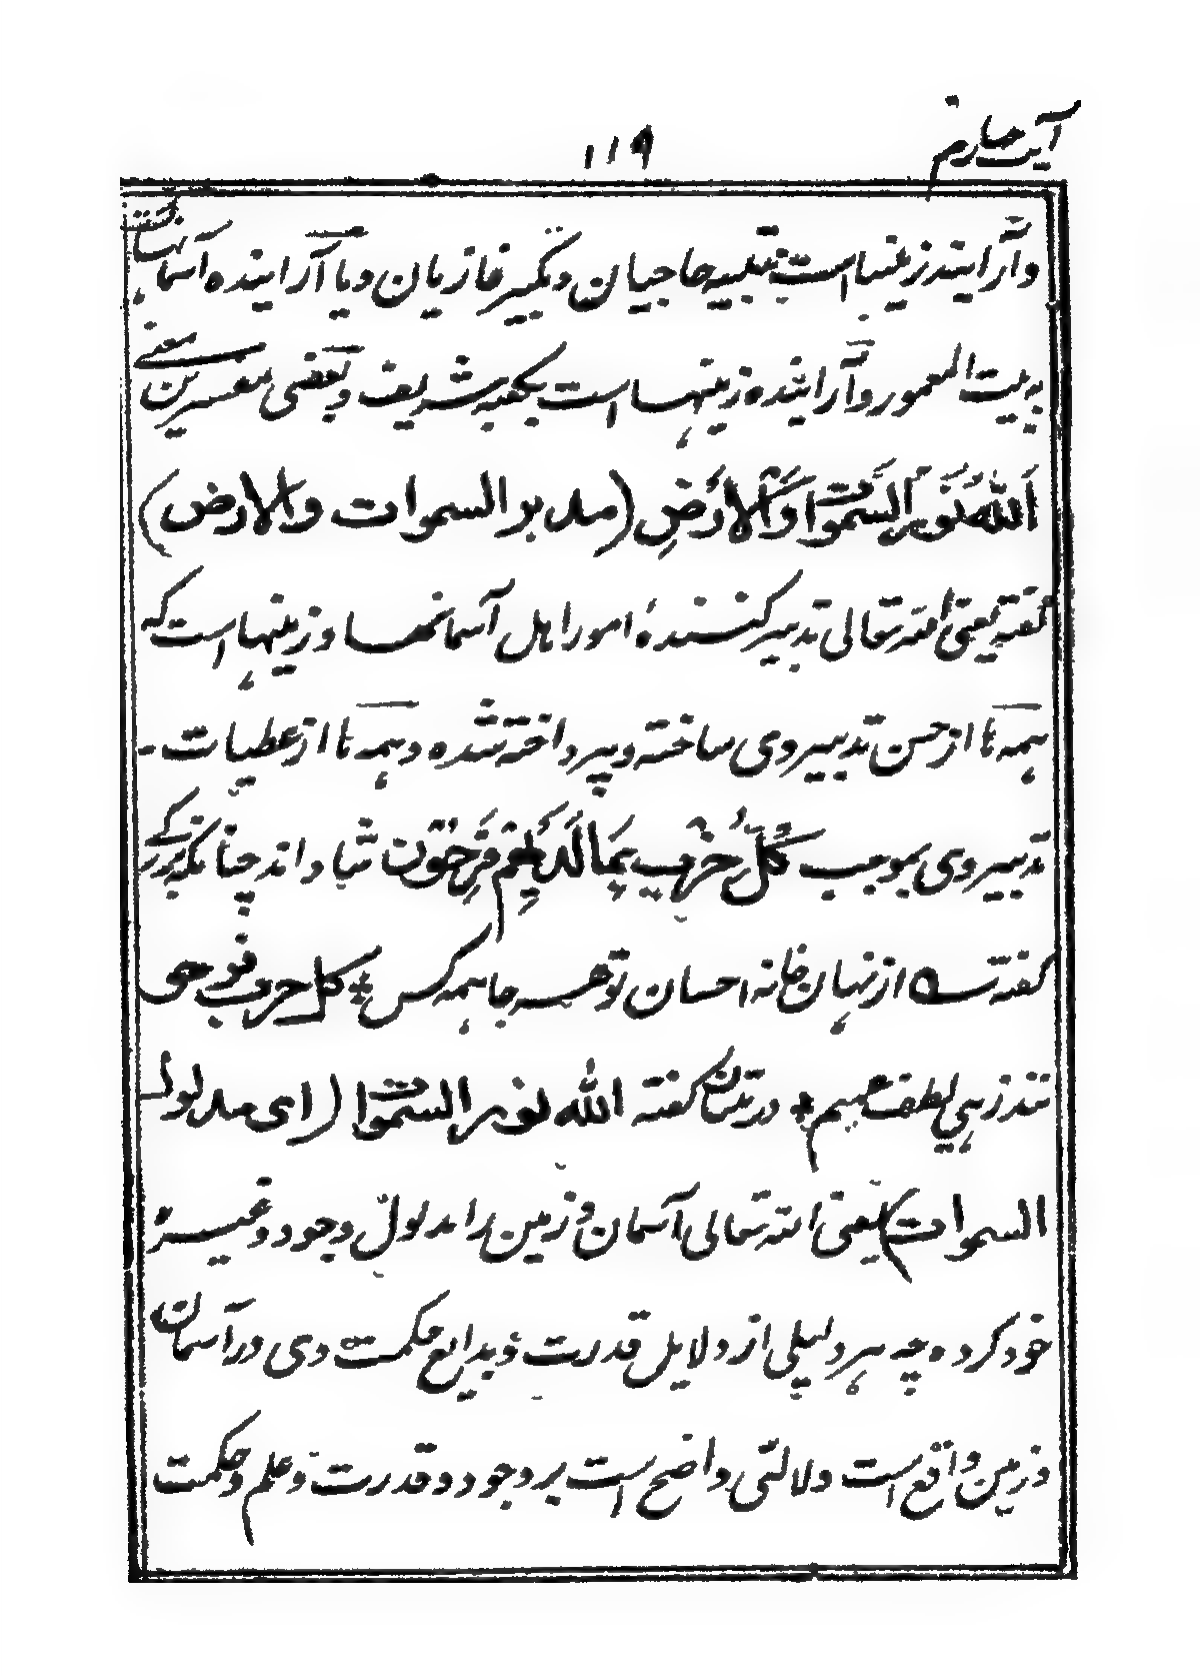 آیت چهارم
۱۱۹
وآرایندۀ زمینهاست بتلبیه حاجیان وتکبیر غازیان ویا آرایندۀ آسمانهاست
به بیت المعمور وآرایندۀ زمینهاست بکعبه شریف وبعضی مفسرین معنی
اَللّٰهُ نُوْرُ السَّمٰوٰتِ وَالْاَرْضِ (مدبر السموات والارض)
گفته یعنی الله تعالی تدبیر کنندۀ امور اهل آسمانها و زمینهاست که
همه تا از حسن تدبیر وی ساخته وپرداخته شده وهمه تا از عطیات -
تدبیر وی بموجب كُلُّ حِزْبٍ بِمَا لَدَيْهِمْ فَرِحُوْنَ شاداند چنانکه بزرگے
گفته ست ه از نهان خانه احسان تو هر جا همه کس * کل حزب فرحی
تند زهی لطف عمیم * ودرتبیان گفته الله نور السموات (ای مدلول
السموات) یعنی الله تعالی آسمان وزمین را مدلول وجود وغیره
خود کرده چه هر دلیلی از دلایل قدرت وبدایع حکمت وی در آسمان
وزمین واقع است دلالتی واضح است بر وجود وقدرت وعلم وحکمت